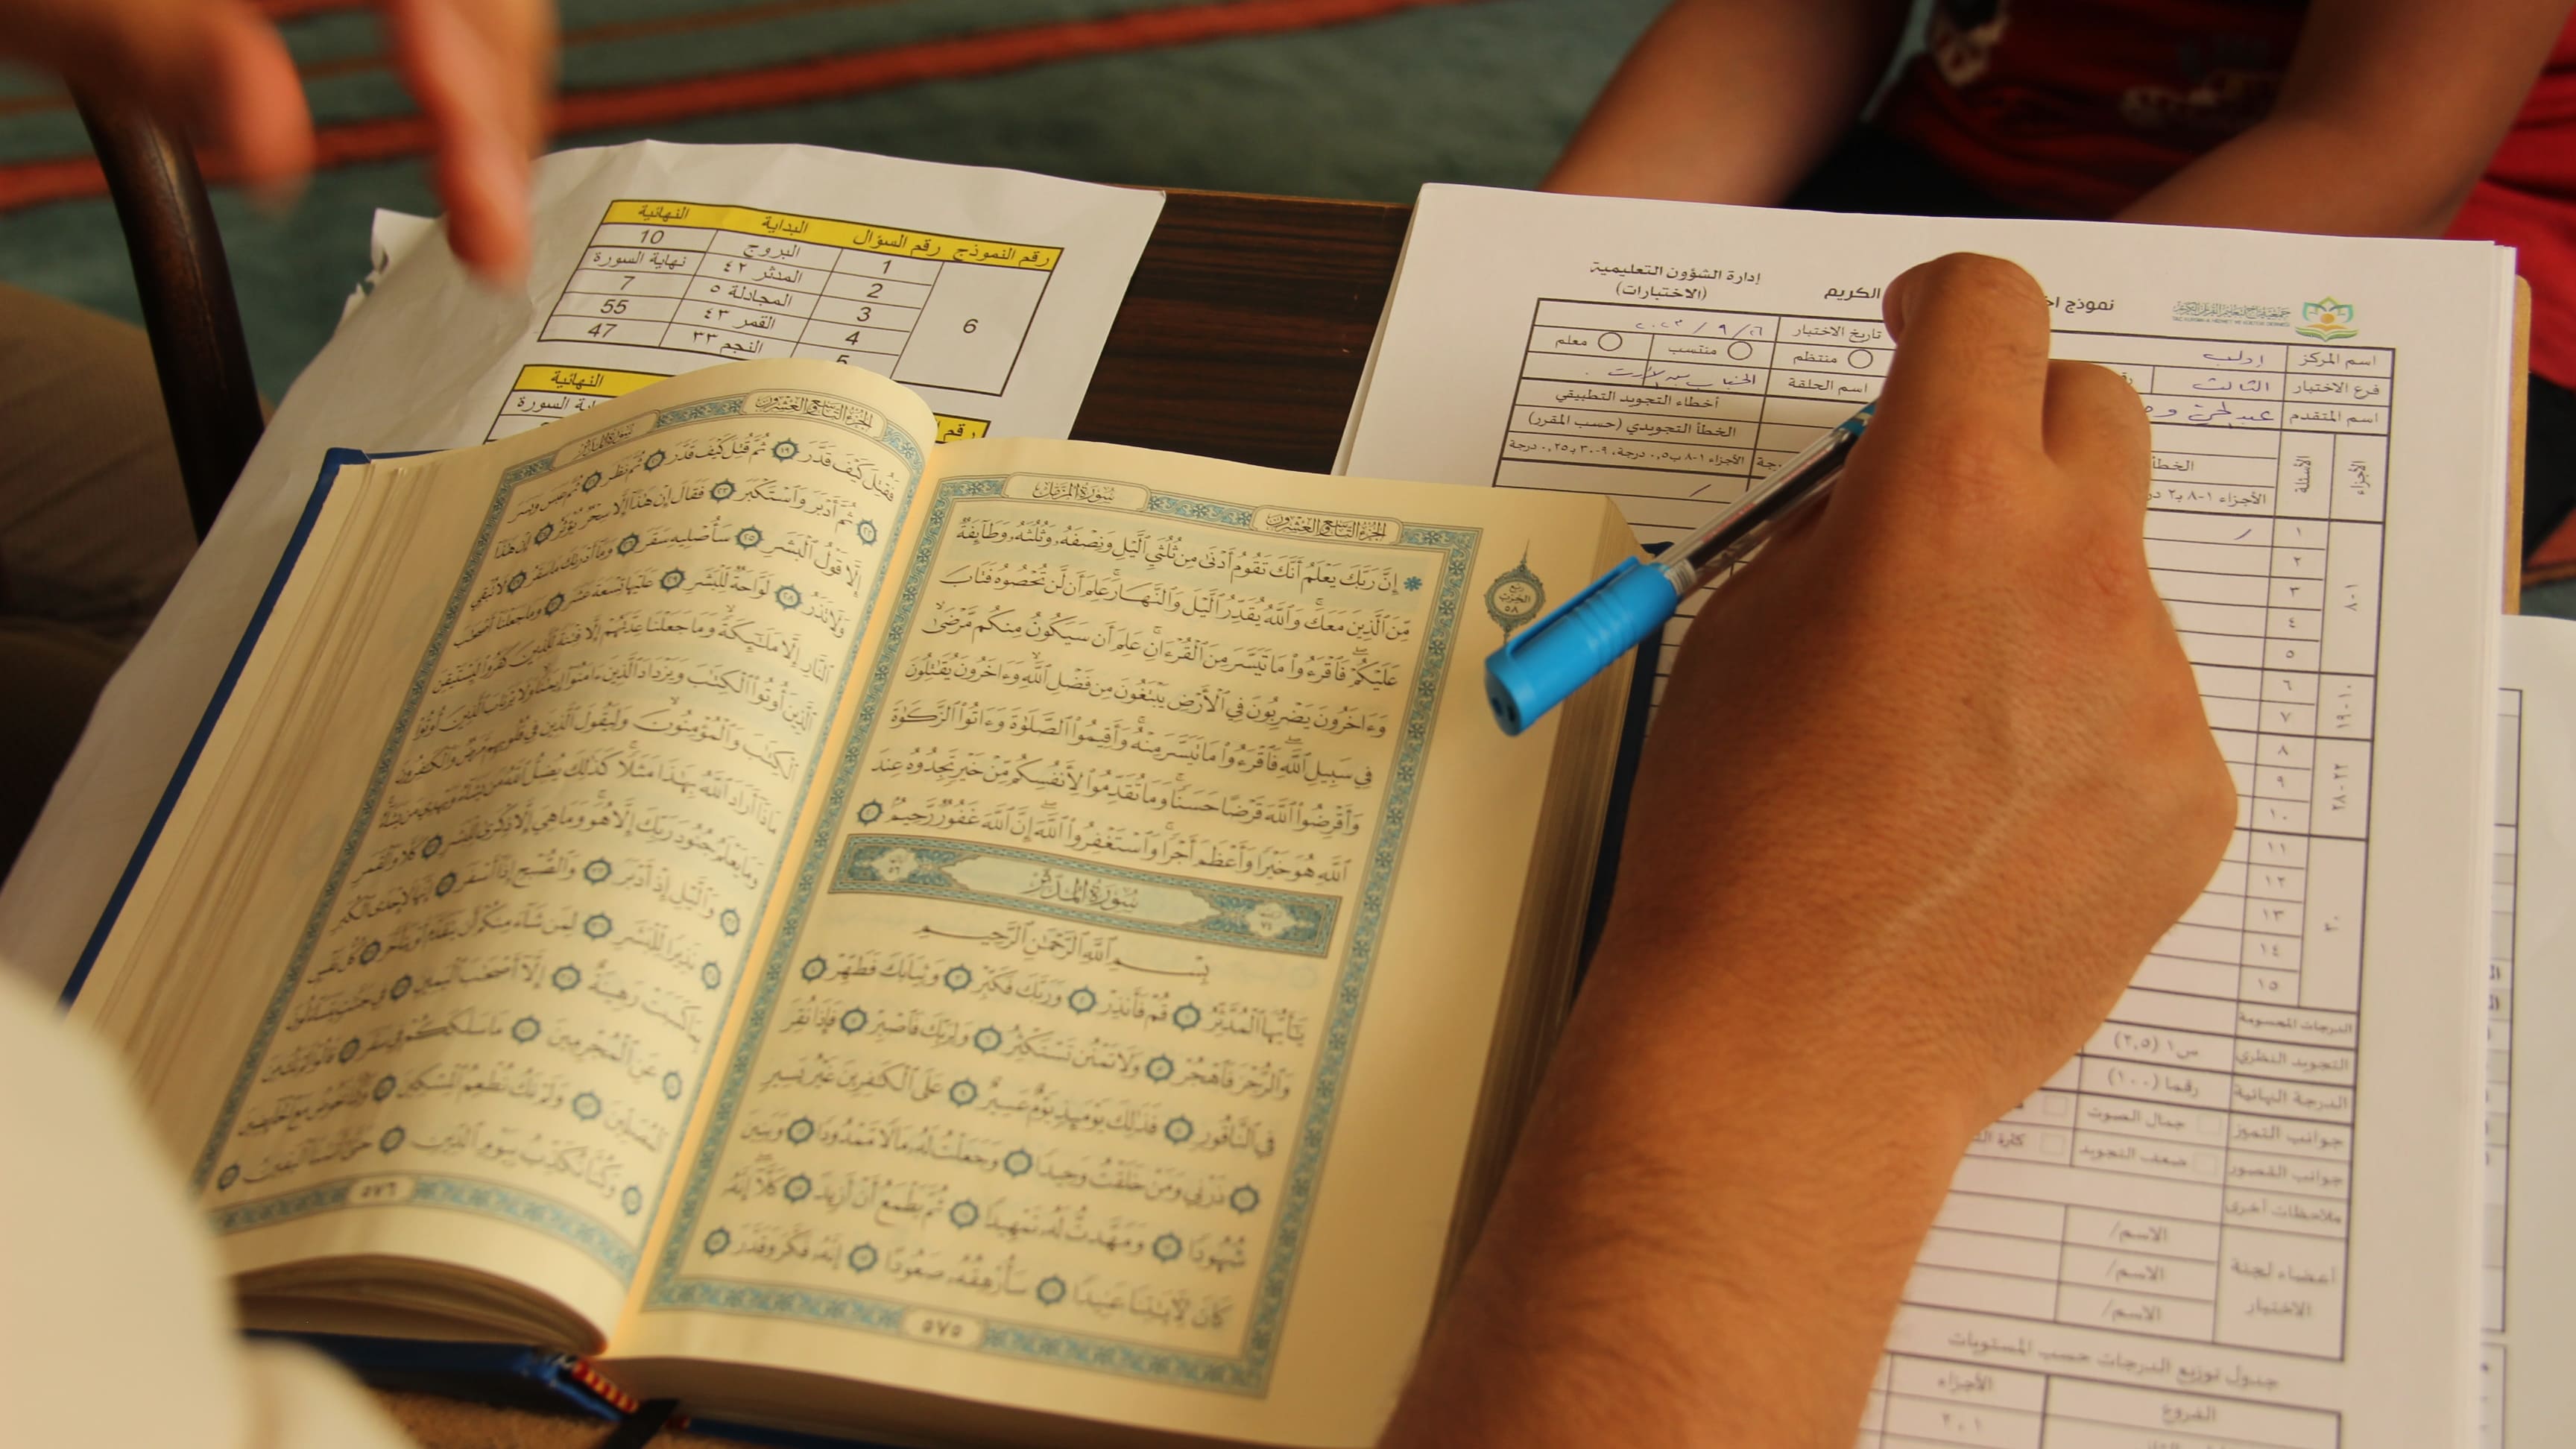 رقم النموذج رقم السؤال البداية النهائية
6 1 البروج 10
2 المدثر ٤٢ نهاية السورة
3 المجادلة ٥ 7
4 القمر ٤٣ 55
5 النجم ٣٣ 47
النهائية
نموذج الكريم
إدارة الشؤون التعليمية
(الاختبارات)
اسم المركز إدلب
تاريخ الاختبار
فرع الاختبار الثالث
منتظم منتسب معلم
اسم المتقدم
اسم الحلقة
أخطاء التجويد التطبيقي
الخطأ التجويدي (حسب المقرر)
الأجزاء ١-٨ ب٠,٥ درجة، ٩-٣٠ ب٠,٢٥ درجة
الأجزاء
الأسئلة
الأجزاء ١-٨ ب٢
١-٨
١
٢
٣
٤
٥
١٠-١٩
٦
٧
٢٢-٢٨
٨
٩
١٠
٣٠
١١
١٢
١٣
١٤
١٥
الدرجات المحسومة
التجويد النظري س١ (٢,٥)
الدرجة النهائية رقما (١٠٠)
جوانب التميز جمال الصوت
جوانب القصور ضعف التجويد كثرة
ملاحظات أخرى
أعضاء لجنة
الاختبار
الاسم/
الاسم/
الاسم/
جدول توزيع الدرجات حسب المستويات
الفروع الأجزاء
الجزء التاسع والعشرون سورة المزمل
إِنَّ رَبَّكَ يَعْلَمُ أَنَّكَ تَقُومُ أَدْنَىٰ مِن ثُلُثَيِ ٱلَّيْلِ وَنِصْفَهُۥ وَثُلُثَهُۥ وَطَآئِفَةٌ
مِّنَ ٱلَّذِينَ مَعَكَ ۚ وَٱللَّهُ يُقَدِّرُ ٱلَّيْلَ وَٱلنَّهَارَ ۚ عَلِمَ أَن لَّن تُحْصُوهُ فَتَابَ
عَلَيْكُمْ ۖ فَٱقْرَءُوا۟ مَا تَيَسَّرَ مِنَ ٱلْقُرْءَانِ ۚ عَلِمَ أَن سَيَكُونُ مِنكُم مَّرْضَىٰ ۙ
وَءَاخَرُونَ يَضْرِبُونَ فِى ٱلْأَرْضِ يَبْتَغُونَ مِن فَضْلِ ٱللَّهِ ۙ وَءَاخَرُونَ يُقَٰتِلُونَ
فِى سَبِيلِ ٱللَّهِ ۖ فَٱقْرَءُوا۟ مَا تَيَسَّرَ مِنْهُ ۚ وَأَقِيمُوا۟ ٱلصَّلَوٰةَ وَءَاتُوا۟ ٱلزَّكَوٰةَ
وَأَقْرِضُوا۟ ٱللَّهَ قَرْضًا حَسَنًا ۚ وَمَا تُقَدِّمُوا۟ لِأَنفُسِكُم مِّنْ خَيْرٍ تَجِدُوهُ عِندَ
ٱللَّهِ هُوَ خَيْرًا وَأَعْظَمَ أَجْرًا ۚ وَٱسْتَغْفِرُوا۟ ٱللَّهَ ۖ إِنَّ ٱللَّهَ غَفُورٌ رَّحِيمٌ ٢٠
سورة المدثر
بِسْمِ ٱللَّهِ ٱلرَّحْمَٰنِ ٱلرَّحِيمِ
يَٰٓأَيُّهَا ٱلْمُدَّثِّرُ ١ قُمْ فَأَنذِرْ ٢ وَرَبَّكَ فَكَبِّرْ ٣ وَثِيَابَكَ فَطَهِّرْ ٤
وَٱلرُّجْزَ فَٱهْجُرْ ٥ وَلَا تَمْنُن تَسْتَكْثِرُ ٦ وَلِرَبِّكَ فَٱصْبِرْ ٧ فَإِذَا نُقِرَ
فِى ٱلنَّاقُورِ ٨ فَذَٰلِكَ يَوْمَئِذٍ يَوْمٌ عَسِيرٌ ٩ عَلَى ٱلْكَٰفِرِينَ غَيْرُ يَسِيرٍ ١٠
ذَرْنِى وَمَنْ خَلَقْتُ وَحِيدًا ١١ وَجَعَلْتُ لَهُۥ مَالًا مَّمْدُودًا ١٢ وَبَنِينَ
شُهُودًا ١٣ وَمَهَّدتُّ لَهُۥ تَمْهِيدًا ١٤ ثُمَّ يَطْمَعُ أَنْ أَزِيدَ ١٥ كَلَّآ ۖ إِنَّهُۥ
كَانَ لِءَايَٰتِنَا عَنِيدًا ١٦ سَأُرْهِقُهُۥ صَعُودًا ١٧ إِنَّهُۥ فَكَّرَ وَقَدَّرَ ١٨
٥٧٥
ربع
الحزب
٥٨
الجزء التاسع والعشرون سورة المدثر
فَقُتِلَ كَيْفَ قَدَّرَ ١٩ ثُمَّ قُتِلَ كَيْفَ قَدَّرَ ٢٠ ثُمَّ نَظَرَ ٢١ ثُمَّ عَبَسَ وَبَسَرَ
٢٢ ثُمَّ أَدْبَرَ وَٱسْتَكْبَرَ ٢٣ فَقَالَ إِنْ هَٰذَآ إِلَّا سِحْرٌ يُؤْثَرُ ٢٤ إِنْ هَٰذَآ
إِلَّا قَوْلُ ٱلْبَشَرِ ٢٥ سَأُصْلِيهِ سَقَرَ ٢٦ وَمَآ أَدْرَىٰكَ مَا سَقَرُ ٢٧ لَا تُبْقِى
وَلَا تَذَرُ ٢٨ لَوَّاحَةٌ لِّلْبَشَرِ ٢٩ عَلَيْهَا تِسْعَةَ عَشَرَ ٣٠ وَمَا جَعَلْنَآ أَصْحَٰبَ
ٱلنَّارِ إِلَّا مَلَٰٓئِكَةً ۙ وَمَا جَعَلْنَا عِدَّتَهُمْ إِلَّا فِتْنَةً لِّلَّذِينَ كَفَرُوا۟ لِيَسْتَيْقِنَ
ٱلَّذِينَ أُوتُوا۟ ٱلْكِتَٰبَ وَيَزْدَادَ ٱلَّذِينَ ءَامَنُوٓا۟ إِيمَٰنًا ۙ وَلَا يَرْتَابَ ٱلَّذِينَ أُوتُوا۟
ٱلْكِتَٰبَ وَٱلْمُؤْمِنُونَ ۙ وَلِيَقُولَ ٱلَّذِينَ فِى قُلُوبِهِم مَّرَضٌ وَٱلْكَٰفِرُونَ
مَاذَآ أَرَادَ ٱللَّهُ بِهَٰذَا مَثَلًا ۚ كَذَٰلِكَ يُضِلُّ ٱللَّهُ مَن يَشَآءُ وَيَهْدِى مَن يَشَآءُ ۚ
وَمَا يَعْلَمُ جُنُودَ رَبِّكَ إِلَّا هُوَ ۚ وَمَا هِىَ إِلَّا ذِكْرَىٰ لِلْبَشَرِ ٣١ كَلَّا وَٱلْقَمَرِ
٣٢ وَٱلَّيْلِ إِذْ أَدْبَرَ ٣٣ وَٱلصُّبْحِ إِذَآ أَسْفَرَ ٣٤ إِنَّهَا لَإِحْدَى ٱلْكُبَرِ
٣٥ نَذِيرًا لِّلْبَشَرِ ٣٦ لِمَن شَآءَ مِنكُمْ أَن يَتَقَدَّمَ أَوْ يَتَأَخَّرَ ٣٧ كُلُّ نَفْسٍۭ
بِمَا كَسَبَتْ رَهِينَةٌ ٣٨ إِلَّآ أَصْحَٰبَ ٱلْيَمِينِ ٣٩ فِى جَنَّٰتٍ يَتَسَآءَلُونَ
٤٠ عَنِ ٱلْمُجْرِمِينَ ٤١ مَا سَلَكَكُمْ فِى سَقَرَ ٤٢ قَالُوا۟ لَمْ نَكُ مِنَ
ٱلْمُصَلِّينَ ٤٣ وَلَمْ نَكُ نُطْعِمُ ٱلْمِسْكِينَ ٤٤ وَكُنَّا نَخُوضُ مَعَ ٱلْخَآئِضِينَ
٤٥ وَكُنَّا نُكَذِّبُ بِيَوْمِ ٱلدِّينِ ٤٦ حَتَّىٰٓ أَتَىٰنَا ٱلْيَقِينُ ٤٧
٥٧٦